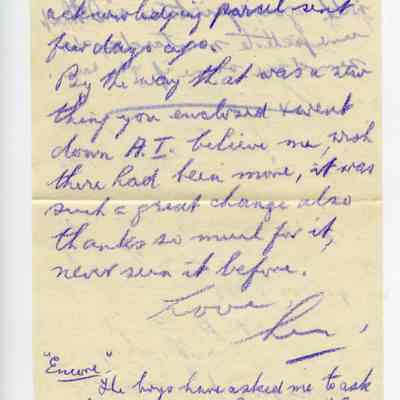 acknowledging parcel sent
few days ago.
By the way that was a new
thing you enclosed & went
down A.I. believe me, wish
there had been more, it was
such a great change also
thanks so much for it,
never seen it before.
Love,
Len,
"Encore".
The boys have asked me to ask